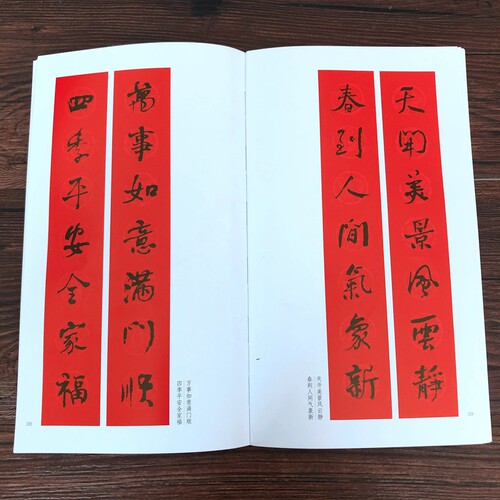 萬事如意滿門順
四季平安全家福
万事如意满门顺
四季平安全家福
天開美景風雲靜
春到人間氣象新
天开美景风云静
春到人间气象新